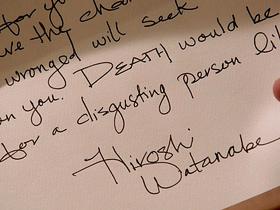 for yo
ve the cha
wronged will seek
on you. DEATH would be
for a disgusting person li
Hiroshi
Watanabe